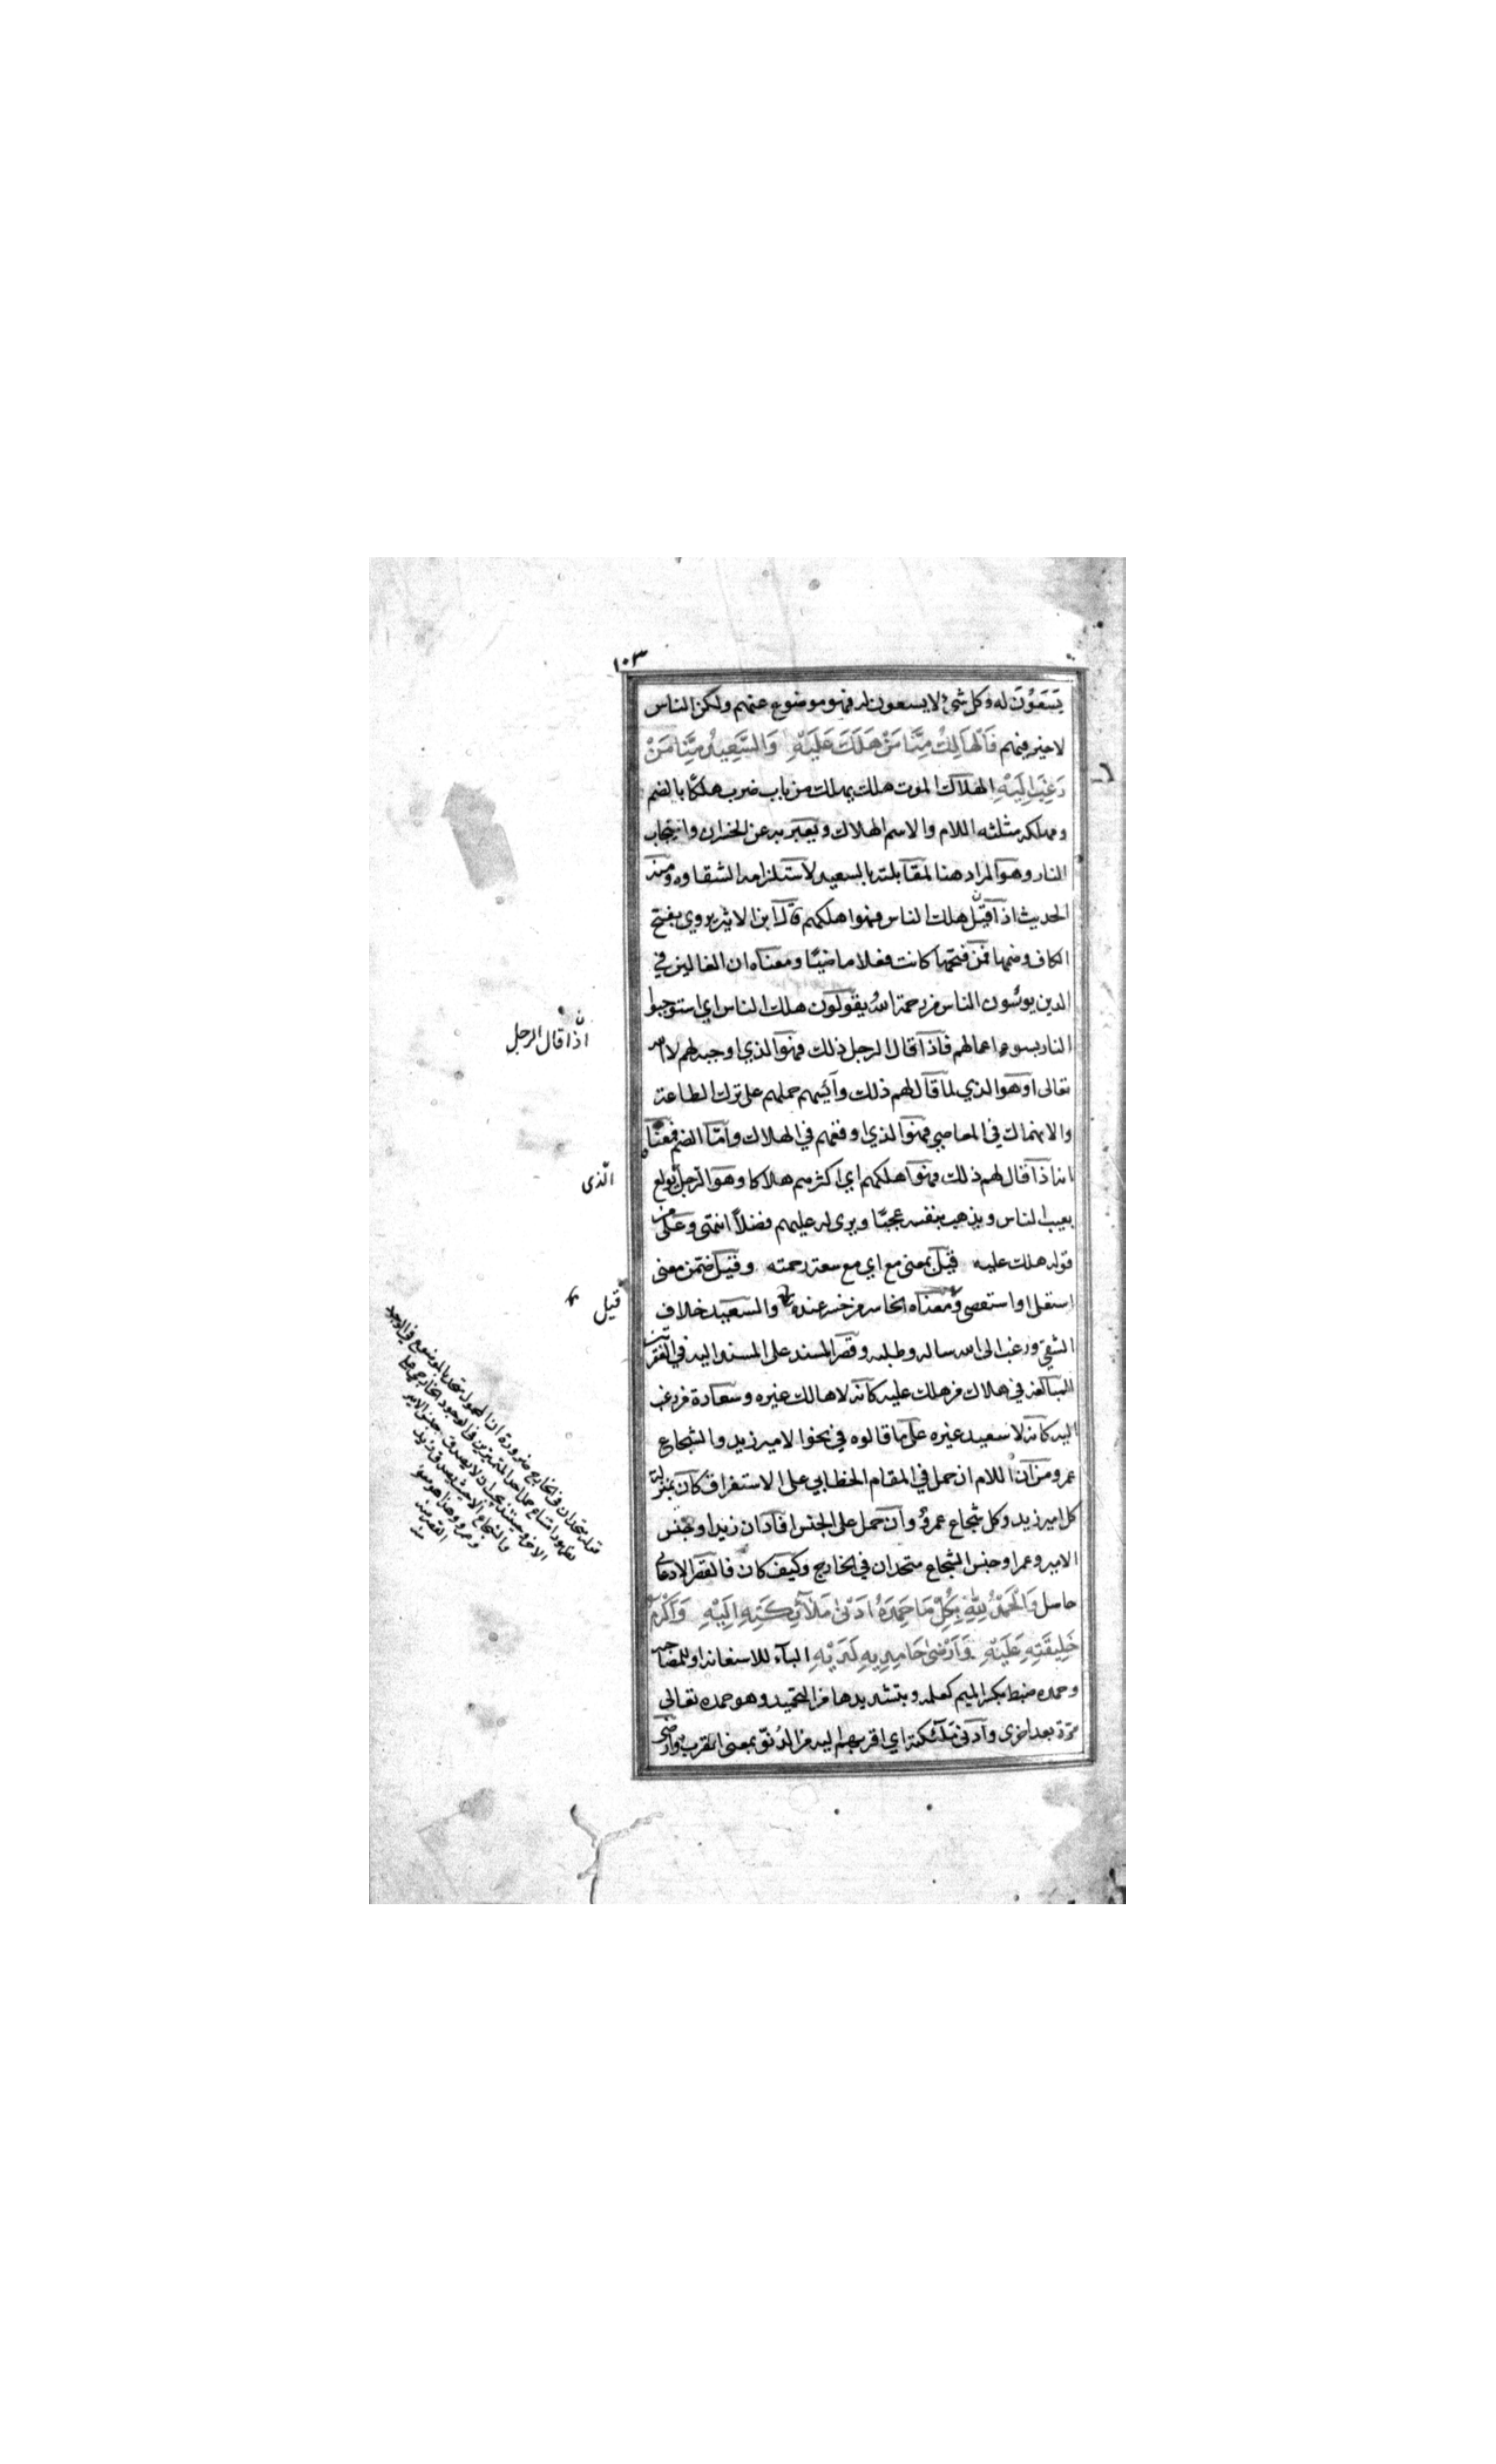 ١٠٣
يسعون له وكل شئ لا يسعون له فهو موضوع عنهم ولكن الناس
لا خير فيهم فَالْهَالِكُ مِنَّا مَنْ هَلَكَ عَلَيْهِ وَالسَّعِيدُ مِنَّا مَنْ
رَغِبَ اِلَيْهِ الهلاك الموت هلك يهلك من باب ضرب هلكًا بالضم
ومهلكه مثلثه اللام والاسم الهلاك ويعبر به عن الخسران وايجاب
النار وهو المراد هنا لمقابلته بالسعيد لاستلزامه الشقاوه ومنه
الحديث اذا قيل هلك الناس فهو اهلكهم قال ابن الاثير يروي بفتح
الكاف وضمها فمن فتحها كانت فعلا ماضيًا ومعناه ان الغالين في
الدين يوئسون الناس من رحمة الله يقولون هلك الناس اي استوجبوا
النار بسوء اعمالهم فاذا قال الرجل ذلك فهو الذي اوجبه لهم لا الله
تعالى او هو الذي لما قال لهم ذلك وآيسهم حملهم على ترك الطاعة
والانهماك في المعاصي فهو الذي اوقعهم في الهلاك وامّا الضم فمعناه
انه اذا قال لهم ذلك فهو اهلكهم اي اكثرهم هلاكا وهو الرجل يولع
بعيب الناس ويذهب بنفسه عجبًا ويرى له عليهم فضلاً انتهى وعلى من
قوله هلك عليه قيل بمعنى مع اي مع سعة رحمته وقيل ضمن معنى
استقل او استعصى ومعناه الخاسر من خسر عنده والسعيد خلاف
الشقي ورغب الى الله ساله وطلبه وقصر المسند على المسند اليه في الفقرتين
للمبالغة في هلاك من هلك عليه كانه لا هالك غيره وسعادة من رغب
اليه كانه لا سعيد غيره على ما قالوه في نحو الامير زيد والشجاع
عمرو من ان اللام ان حمل في المقام الخطابي على الاستغراق كان بمنزلة
كل امير زيد وكل شجاع عمرو وان حمل على الجنس افاد ان زيدا وجنس
الامير وعمرا وجنس الشجاع متحدان في الخارج وكيف كان فالقصر الادعائي
حاصل وَالْحَمْدُ لِلّٰهِ بِكُلِّ مَا حَمِدَهُ اَدْنىٰ مَلآئِكَتِهِ اِلَيْهِ وَاَكْرَمُ
خَلِيقَتِهِ عَلَيْهِ وَاَرْضىٰ حَامِدِيهِ لَدَيْهِ البآء للاستعانه او للمصاحبه
وحمده ضبط بكسر الميم كعلمه وبتشديدها من التحميد وهو حمده تعالى
مرّة بعد اخرى وادنى ملئكته اي اقربهم اليه من الدنوّ بمعنى القرب وارضى
اذا قال الرجل
الّذى
قيل
قوله متحدان في الخارج ضرورة ان المحمول متحد بالموضوع في الوجود
لظهور امتناع حمل احد المتميزين في الوجود الخارجي على
الاخر وحينئذ يجب ان لا يصدق جنس الامير
والشجاع الا حيث يصدق زيد
وعمرو وهذا هو معنى
القصر منه